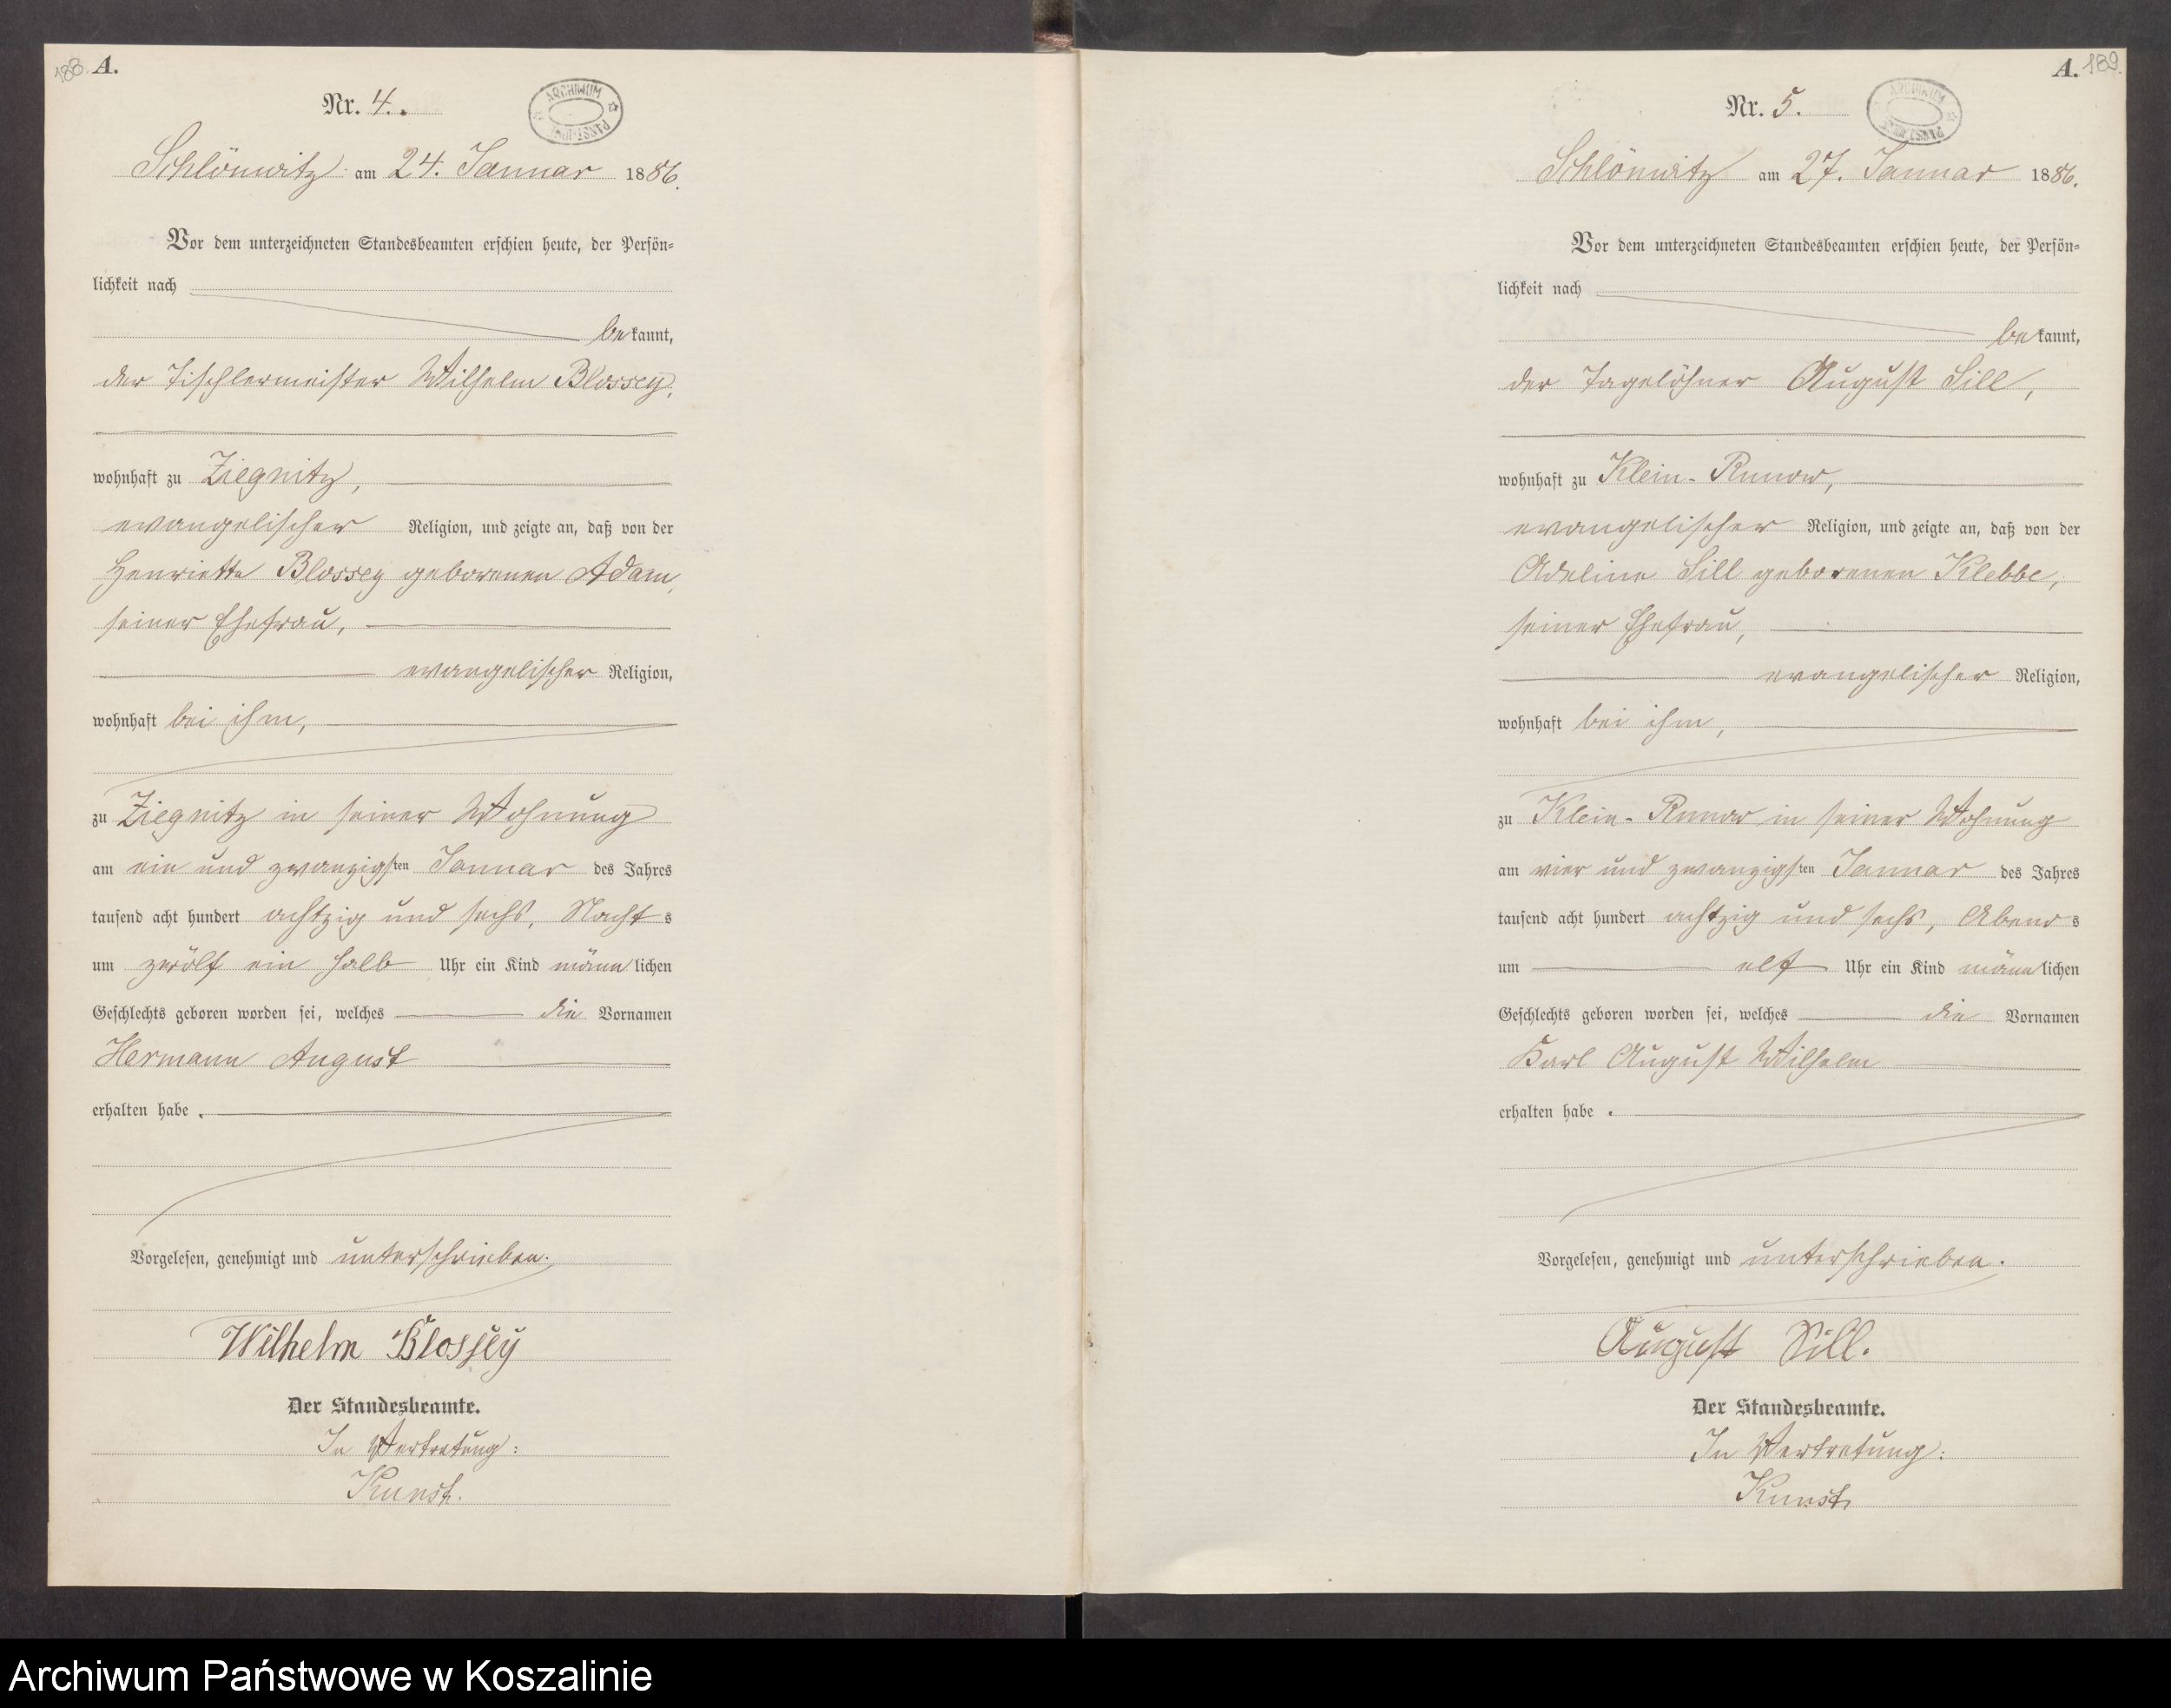 188. A.
Nr. 4.
ARCHIWUM PAŃSTWOWE
Schlönwitz am 24. Januar 1886.
Vor dem unterzeichneten Standesbeamten erschien heute, der Persön-
lichkeit nach
bekannt,
der Tischlermeister Wilhelm Blossey,
wohnhaft zu Ziegnitz,
evangelischer Religion, und zeigte an, daß von der
Henriette Blossey geborenen Adam,
seiner Ehefrau,
evangelischer Religion,
wohnhaft bei ihm,
zu Ziegnitz in seiner Wohnung
am ein und zwanzigsten Januar des Jahres
tausend acht hundert achtzig und sechs, Nachts
um zwölf ein halb Uhr ein Kind männlichen
Geschlechts geboren worden sei, welches die Vornamen
Hermann August
erhalten habe.
Vorgelesen, genehmigt und unterschrieben.
Wilhelm Blossey
Der Standesbeamte.
In Vertretung:
Kunst.
A. 189.
Nr. 5.
ARCHIWUM PAŃSTWOWE
Schlönwitz am 27. Januar 1886.
Vor dem unterzeichneten Standesbeamten erschien heute, der Persön-
lichkeit nach
bekannt,
der Tagelöhner August Sill,
wohnhaft zu Klein-Runow,
evangelischer Religion, und zeigte an, daß von der
Adeline Sill geborenen Klebbe,
seiner Ehefrau,
evangelischer Religion,
wohnhaft bei ihm,
zu Klein-Runow in seiner Wohnung
am vier und zwanzigsten Januar des Jahres
tausend acht hundert achtzig und sechs, Abends
um elf Uhr ein Kind männlichen
Geschlechts geboren worden sei, welches die Vornamen
Karl August Wilhelm
erhalten habe.
Vorgelesen, genehmigt und unterschrieben.
August Sill.
Der Standesbeamte.
In Vertretung:
Kunst
Archiwum Państwowe w Koszalinie